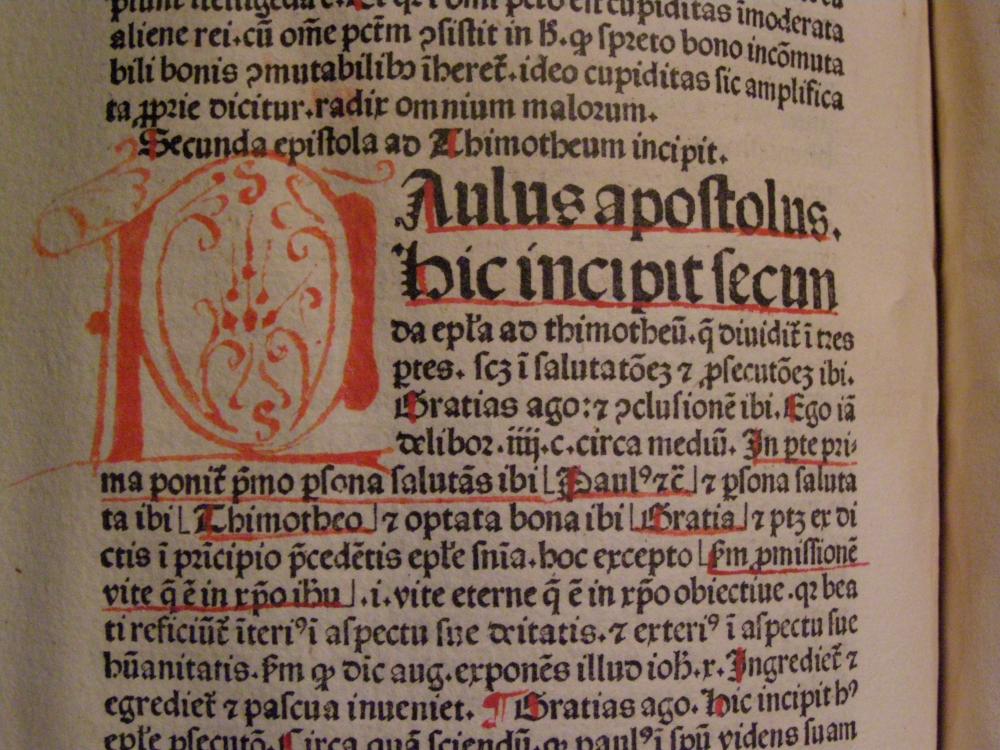 aliene rei.cū om̄e pctm̄ ꝯſiſtit in h̄.ꝙ ſpreto bono incōmuta
bili bonis ꝯmutabilibꝫ īheret̄.ideo cupiditas ſic amplifica
ta ꝓprie dicitur.radix omnium malorum.
Secunda epiſtola ad Thimotheum incipit.
P
Aulus apoſtolus.
hic incipit ſecun
da epł'a ad thimotheū.q̄ diuidit̄ ī tres
ꝑtes. ſcꝫ ī ſalutatōeꝫ ⁊ ꝓſecutōeꝫ ibi.
Gratias ago:⁊ ꝯcluſionē ibi.Ego iā
delibor.iiij.c.circa mediū. In ꝑte pri⸗
ma ponit̄ p̄mo ꝑſona ſalutās ibi ⌊Paulꝰ ⁊c̄⌋ ⁊ ꝑſona ſaluta
ta ibi ⌊Thimotheo⌋ ⁊ optata bona ibi ⌊Gratia⌋ ⁊ ptꝫ ex di
ctis ī prīcipio p̄cedētis epł'e ſnīa.hoc excepto ⌊ẜm ꝓmiſſionē
vite q̄ ē in xp̄o ihū⌋.i.vite eterne q̄ ē in xp̄o obiectiue.qꝛ bea
ti reficiūt̄ īteriꝰ ī aſpectu ſue deitatis.⁊ exteriꝰ ī aſpectu ſue
hūanitatis.ẜm ꝙ dic̄ aug.exponēs illud ioh̄.x.Ingrediet̄ ⁊
egrediet̄ ⁊ paſcua inueniet. ¶ Gratias ago. hic incipit hꝰ
epł'e ꝓſecutō.Circa quā ſciendū.ꝙ paulꝰ ī ſpū videns ſuam